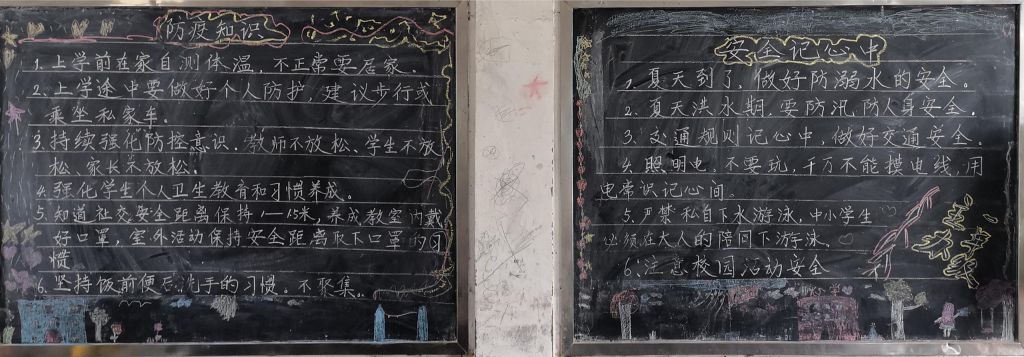 防疫知识
1. 上学前在家自测体温，不正常要居家。
2. 上学途中要做好个人防护，建议步行或
乘坐私家车。
3. 持续强化防控意识。教师不放松、学生不放
松、家长不放松。
4. 强化学生个人卫生教育和习惯养成。
5. 知道社交安全距离保持1—1.5米，养成教室内戴
好口罩，室外活动保持安全距离取下口罩的习
惯
6. 坚持饭前便后洗手的习惯。不聚集。
安全记心中
1. 夏天到了，做好防溺水的安全。
2. 夏天洪水期，要防汛防人身安全。
3. 交通规则记心中，做好交通安全。
4. 照明电，不要玩，千万不能摸电线，用
电常识记心间。
5. 严禁私自下水游泳，中小学生
必须在大人的陪同下游泳。
6. 注意校园活动安全